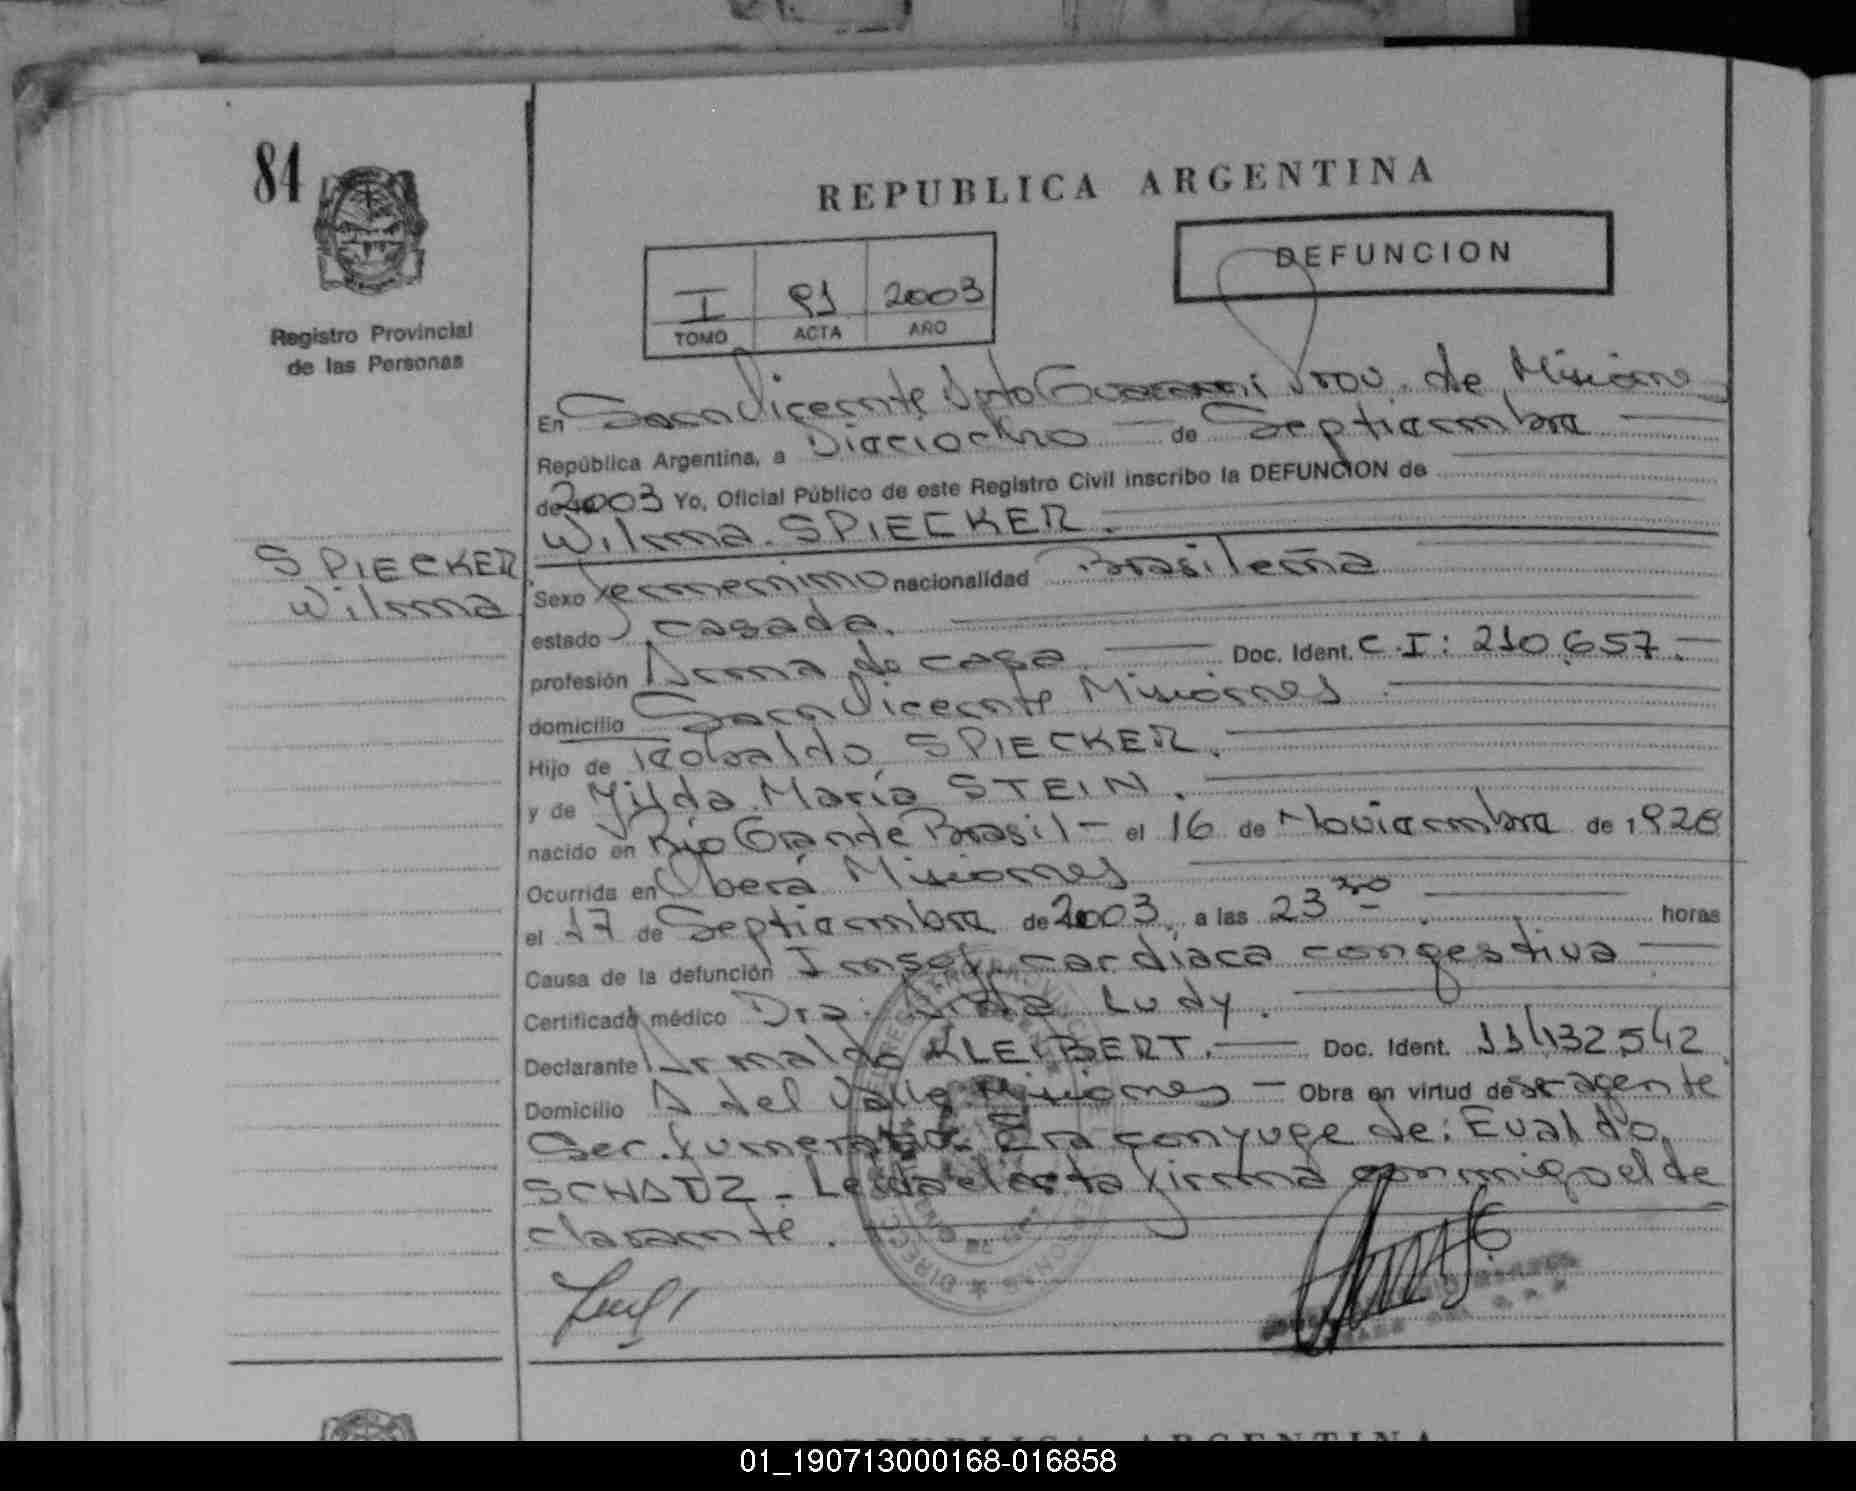 84
REPUBLICA ARGENTINA
DEFUNCION
I 91 2003
TOMO ACTA AÑO
Registro Provincial
de las Personas
En San Vicente Dpto Guarani Prov. de Misiones
República Argentina, a Dieciocho de Septiembre
de 2003 Yo, Oficial Público de este Registro Civil inscribo la DEFUNCION de
Wilma SPIECKER.
SPIECKER
Wilma
Sexo femenino nacionalidad Brasileña
estado casada.
profesión Ama de casa Doc. Ident. C.I: 210.657.
domicilio San Vicente Misiones
Hijo de Teobaldo SPIECKER.
y de Hilda María STEIN.
nacido en Rio Grande Brasil - el 16 de Noviembre de 1928
Ocurrida en Oberá Misiones
el 17 de Septiembre de 2003, a las 23 30 horas
Causa de la defunción Insuf. cardíaca congestiva
Certificado médico Dra. Ludy.
Declarante Arnaldo KLEIBERT. Doc. Ident. 11.132.542
Domicilio A del Valle Misiones - Obra en virtud de ser agente
Ser. funerario. Era conyuge de: Evaldo
SCHATZ - Leida el acta firma conmigo el de
clarante.
01_190713000168-016858